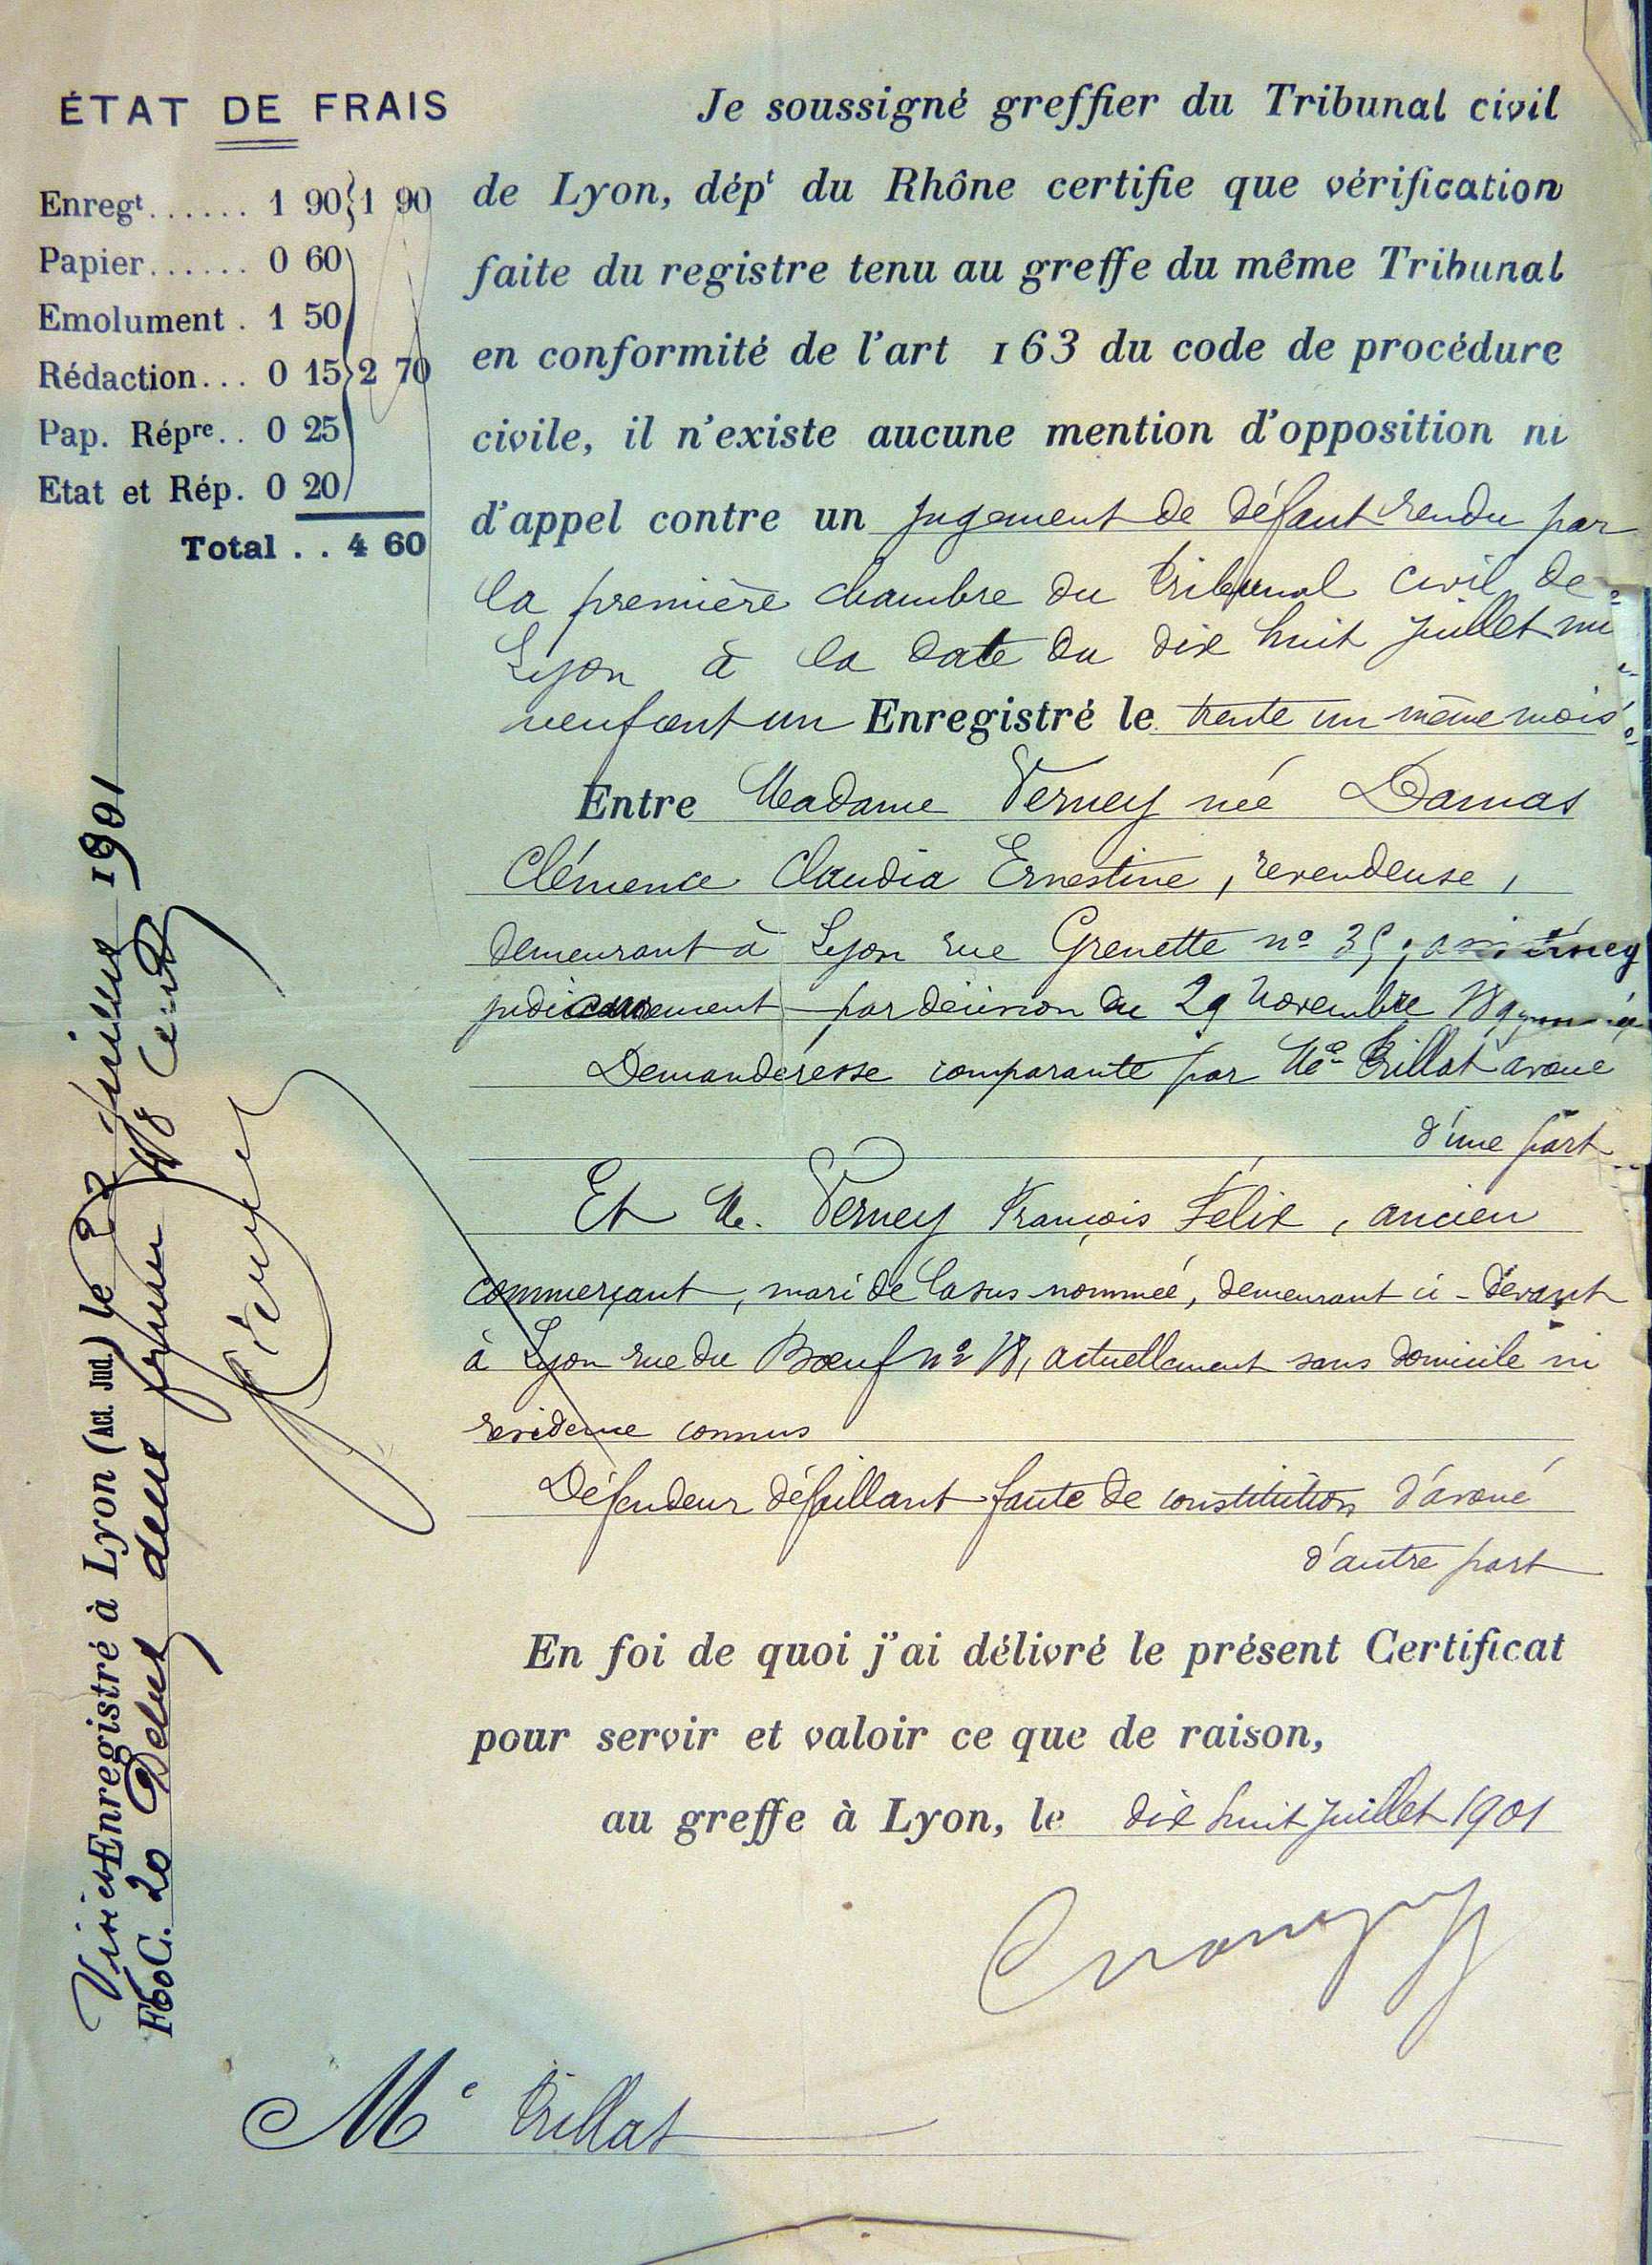 ÉTAT DE FRAIS
Enregt...... 1 90 } 1 90
Papier...... 0 60
Emolument . 1 50
Rédaction... 0 15 } 2 70
Pap. Répre.. 0 25
Etat et Rép. 0 20
Total . . 4 60
Je soussigné greffier du Tribunal civil
de Lyon, dépt du Rhône certifie que vérification
faite du registre tenu au greffe du même Tribunal
en conformité de l'art 163 du code de procédure
civile, il n'existe aucune mention d'opposition ni
d'appel contre un jugement de défaut rendu par
la première chambre du tribunal civil de
Lyon à la date du dix huit juillet mil
neuf cent un Enregistré le trente un même mois
Entre Madame Verney née Damas
Clémence Claudia Ernestine, revendeuse,
demeurant à Lyon rue Grenette no 35,
par décision du 29 Novembre
Demanderesse comparante par Me Trillat avoué
d'une part
Et M. Verney François Félix, ancien
commerçant, mari de la sus nommée, demeurant ci-devant
à Lyon rue du Bœuf no 18, actuellement sans domicile ni
residence connus
Défendeur défaillant faute de constitution d'avoué
d'autre part
En foi de quoi j'ai délivré le présent Certificat
pour servir et valoir ce que de raison,
au greffe à Lyon, le dix huit juillet 1901
Me Trillat
Enregistré à Lyon (Act. Jud.) le juillet 1901
F60 C. 20 deux